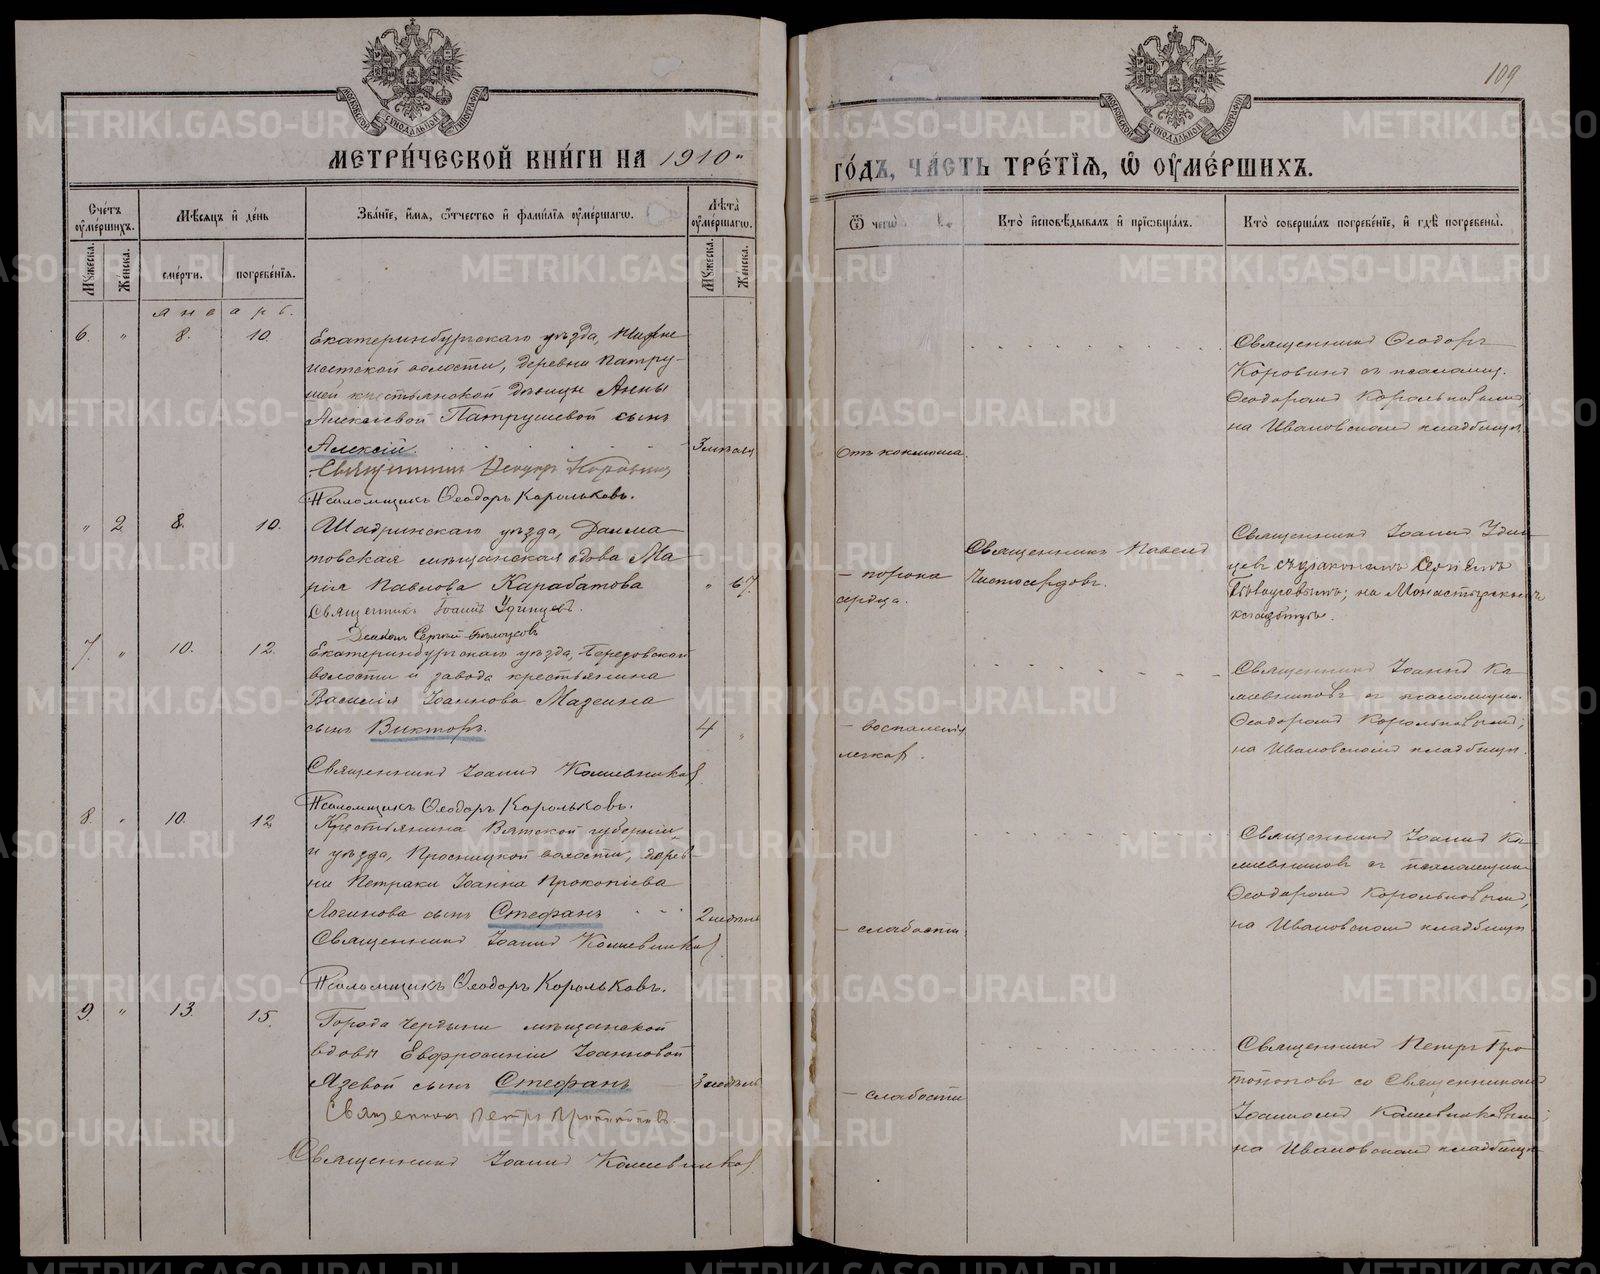 109
МЕТРИ́ЧЕСКОЙ КНИ́ГИ НА 1910 „
ГО́ДЪ, ЧА́СТЬ ТРЕ́ТІѦ, Ѽ ОУМЕ́РШИХЪ.
Счетъ оумершихъ.
Мужеска.
Женска.
Мѣсяцъ и день
смерти.
погребенія.
Званіе, имя, отчество и фамилія оумершаго.
Лѣта оумершаго.
Мужеска.
Женска.
Ѿ чего
Кто исповѣдывалъ и пріобщалъ.
Кто совершалъ погребеніе, и гдѣ погребены.
Январь.
6. „ 8. 10.
Екатеринбургскаго уѣзда, Нижне
исетской волости, деревни Патру-
шей крестьянской дѣвицы Анны
Алексѣевой Патрушевой сынъ
Алексій. 3 мѣсяц
Священникъ Ѳеодоръ Коровинъ
Псаломщикъ Ѳеодоръ Корольковъ.
Отъ коклюша.
Священникъ Ѳеодоръ
Коровинъ съ псаломщ.
Ѳеодоромъ Корольковымъ;
на Ивановскомъ кладбищѣ.
„ 2 8. 10.
Шадринскаго уѣзда, Далма
товская мѣщанская вдова Ма
рія Павлова Карабатова „ 67.
Священникъ Іоаннъ Удинцевъ.
Діаконъ Сергій Бѣлоусовъ
– порока
сердца.
Священникъ Павелъ
Чистосердовъ.
Священникъ Іоаннъ Удин
цевъ съ діакономъ Сергіемъ
Бѣлоусовымъ; на Монастырскомъ
кладбищѣ.
7. „ 10. 12.
Екатеринбургскаго уѣзда, Березовской
волости и завода крестьянина
Василія Іоаннова Мазеина
сынъ Викторъ. 4 „
Священникъ Іоаннъ Хлопьевниковъ
Псаломщикъ Ѳеодоръ Корольковъ.
– воспаленія
легков.
Священникъ Іоаннъ
съ псаломщик.
Ѳеодоромъ Корольковымъ;
на Ивановскомъ кладбищѣ.
8. „ 10. 12
Крестьянина Вятской губерніи
и уѣзда, Просницкой волости, дерев-
ни Петраки Іоанна Прокопіева
Логинова сынъ Стефанъ 2 недѣль
Священникъ Іоаннъ
Псаломщикъ Ѳеодоръ Корольковъ.
– слабости
Священникъ Іоаннъ
съ псаломщик
Ѳеодоромъ Корольковымъ;
на Ивановскомъ кладбищѣ
9. „ 13. 15.
Города Чердыни мѣщанской
вдовы Евфросиніи Іоанновой
Язевой сынъ Стефанъ 3 недѣль
Священникъ Петръ Протопоповъ.
Священникъ Іоаннъ
– слабости
Священникъ Петръ Про
топоповъ со Священникомъ
Іоанномъ
на Ивановскомъ кладбищѣ
METRIKI.GASO-URAL.RU